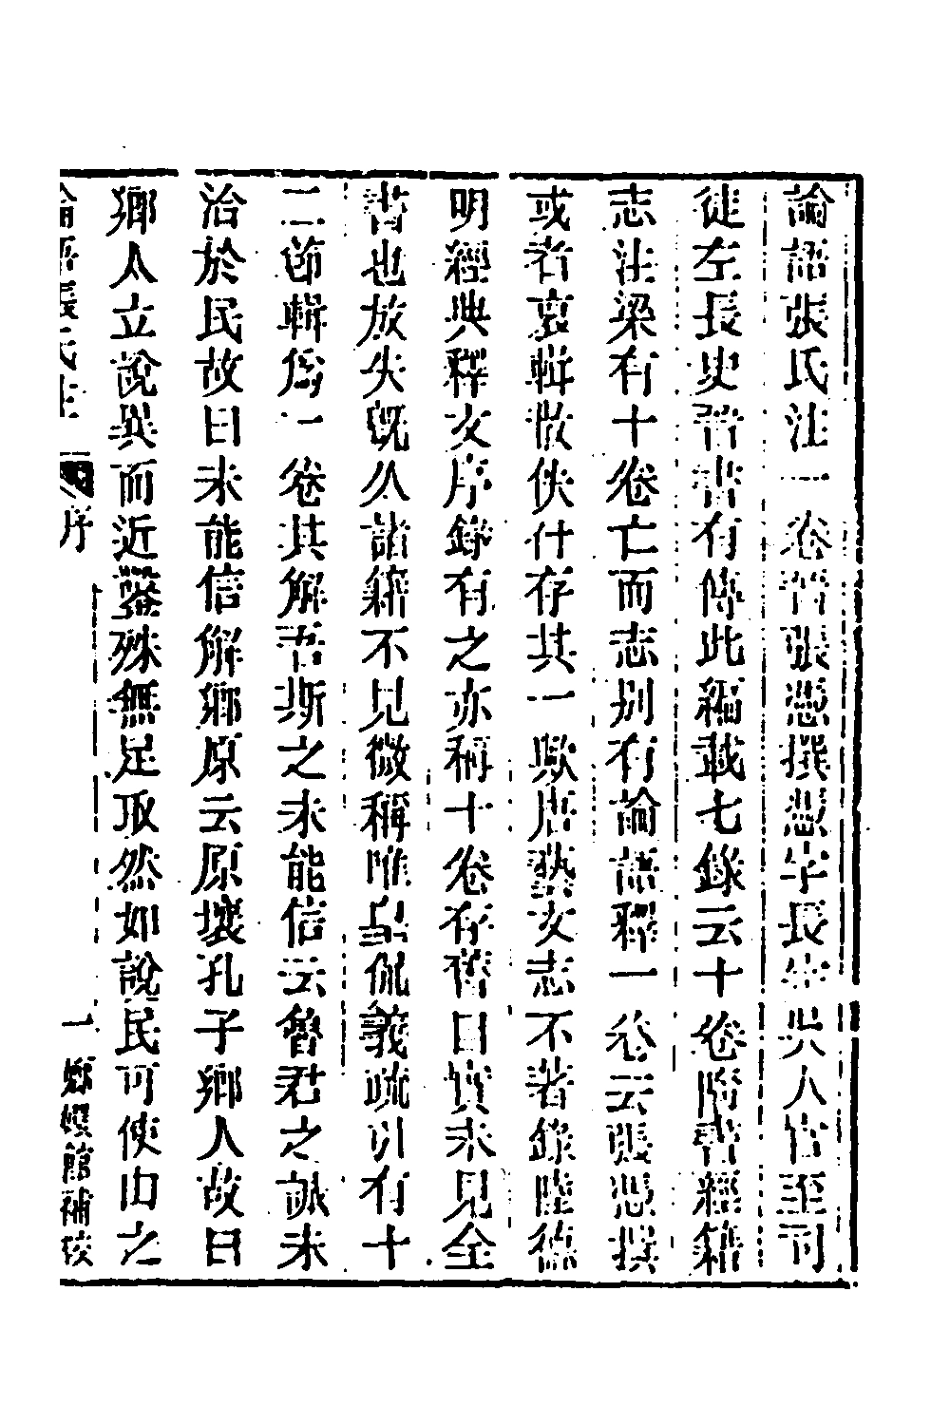 論語張氏注一卷晉張憑撰憑字長宗吳人官至司
徒左長史晉書有傳此編載七錄云十卷隋書經籍
志注梁有十卷亡而志别有論語釋一卷云張憑撰
或者裒輯散佚什存其一歟唐藝文志不著錄陸德
明經典釋文序錄有之亦稱十卷存舊目實未見全
書也放失旣久諸籍不見徵稱唯皇侃義疏引有十
二節輯爲一卷其解吾斯之未能信云魯君之誠未
洽於民故曰未能信解鄉原云原壤孔子鄉人故曰
鄉人立說異而近鑿殊無足取然如說民可使由之
論語張氏注 序 一 嫏嬛館補校